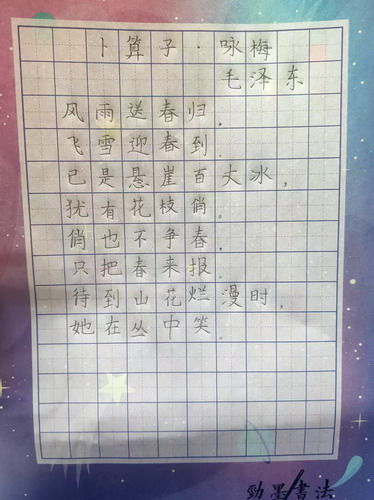 卜算子·咏梅
毛泽东
风雨送春归,
飞雪迎春到.
已是悬崖百丈冰,
犹有花枝俏.
俏也不争春,
只把春来报.
待到山花烂漫时,
她在丛中笑.
勁墨書法